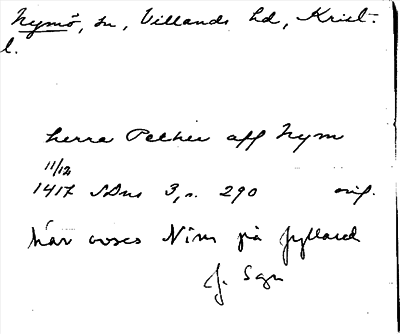 Nymö, sn, Villands hd, Krist.
l.
herra Pether aff Nym
11/12
1417 SDns 3, s. 290 orig.
här avses Nim på Jylland
J. Sgn